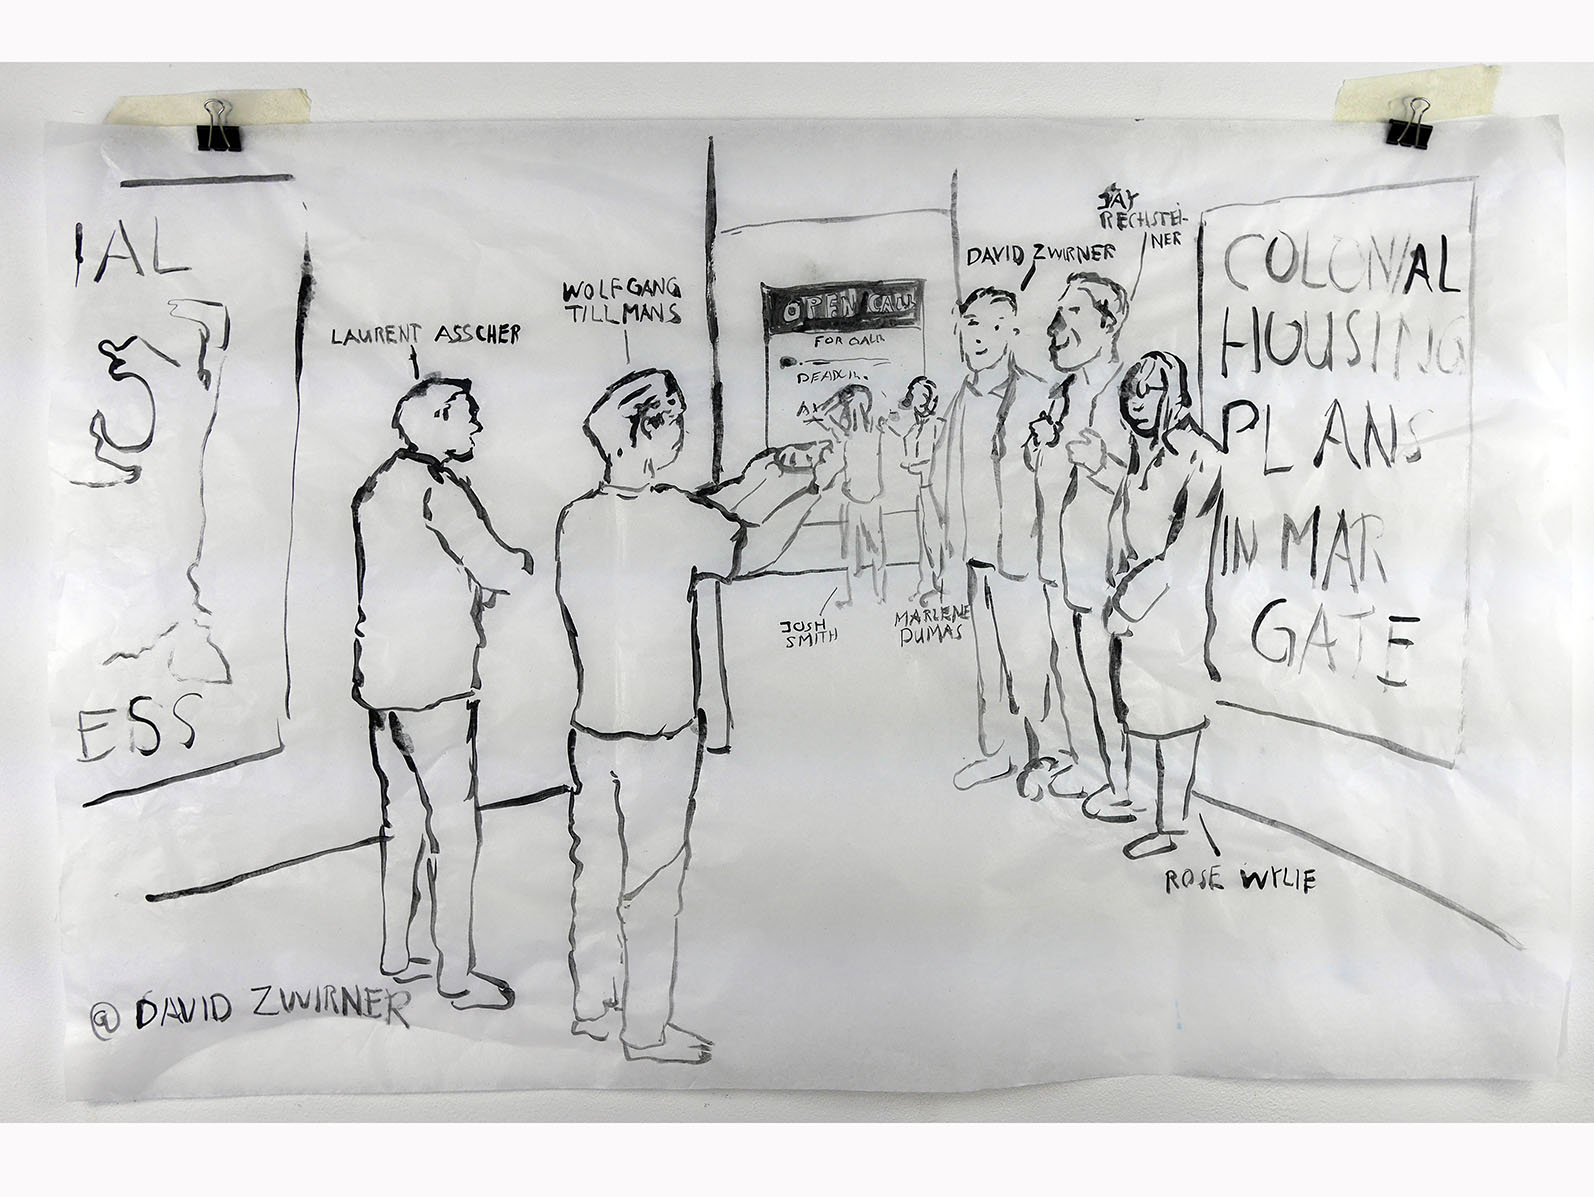 IAL
ESS
LAURENT ASSCHER
WOLFGANG
TILLMANS
OPEN CALL
FOR
JOSH
SMITH
MARLENE
DUMAS
DAVID ZWIRNER
JAY
RECHSTEI-
NER
COLONIAL
HOUSING
PLANS
IN MAR
GATE
ROSE WYLIE
@ DAVID ZWIRNER